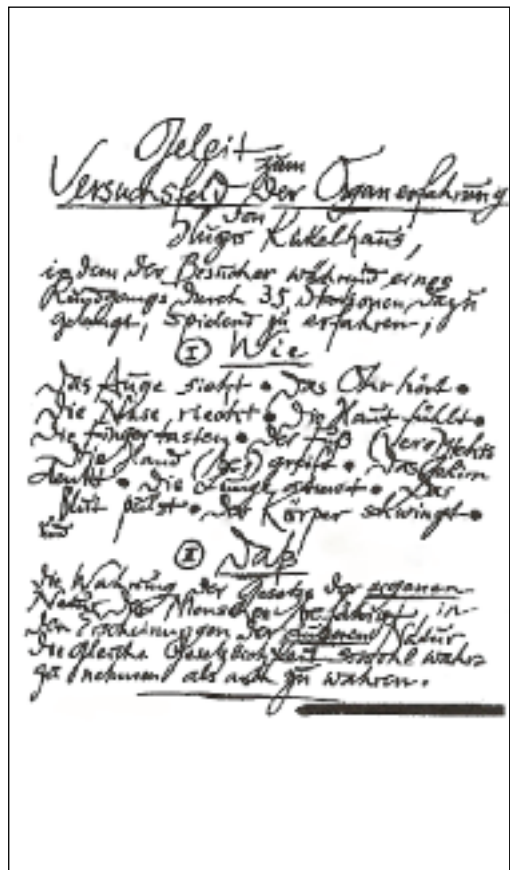 Geleit
zum
Versuchsfeld Der Organerfahrung
von
Hugo Kükelhaus,
in dem der Besucher während eines
Rundgangs durch 35 Stationen dazu
gelangt, Spielend zu erfahren;
I Wie
Das Auge sieht • Das Ohr hört •
Die Nase riecht • Die Haut fühlt •
Die Finger tasten • der Fuß (ver)steht •
Die Hand (be) greift • Das Gehirn
denkt • die Lunge atmet • Das
Blut pulst • der Körper schwingt •
und
II Daß
die Wahrung der Gesetze der eigenen
Natur den Menschen befähigt in
den Erscheinungen der äußeren Natur
die gleiche Gesetzlichkeit sowohl wahr
zu nehmen als auch zu wahren.